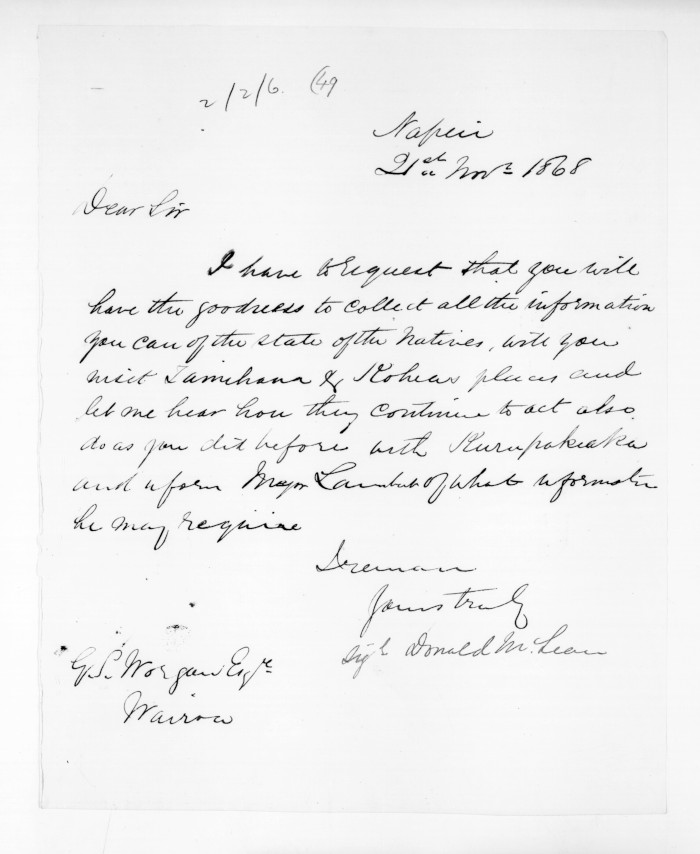 2/2/6. (49
Napier
21st Novr 1868
Dear Sir
I have to request that you will
have the goodness to collect all the information
you can of the state of the Natives, will you
visit Tamihana & Kohears places and
let me hear how they continue to act also
do as you did before with Kurupakiaka
and inform Major Lambert of what informatn
he may require
I remain
Yours truly
Sigd Donald McLean
G.S. Worgan Esqre
Wairoa